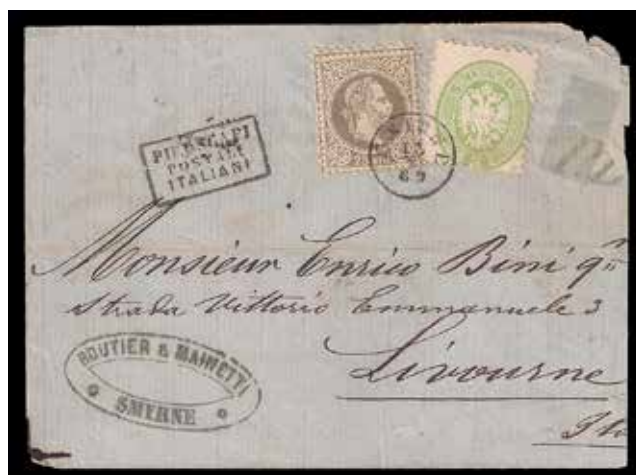 PIROSCAFI
POSTALI
ITALIANI
69
Monsieur Enrico Bini qm
Strada Vittorio Emmanuele 3
Livourne
ROUTIER & MAINETTI
SMYRNE